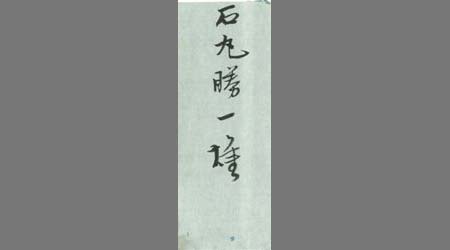 石丸勝一雄